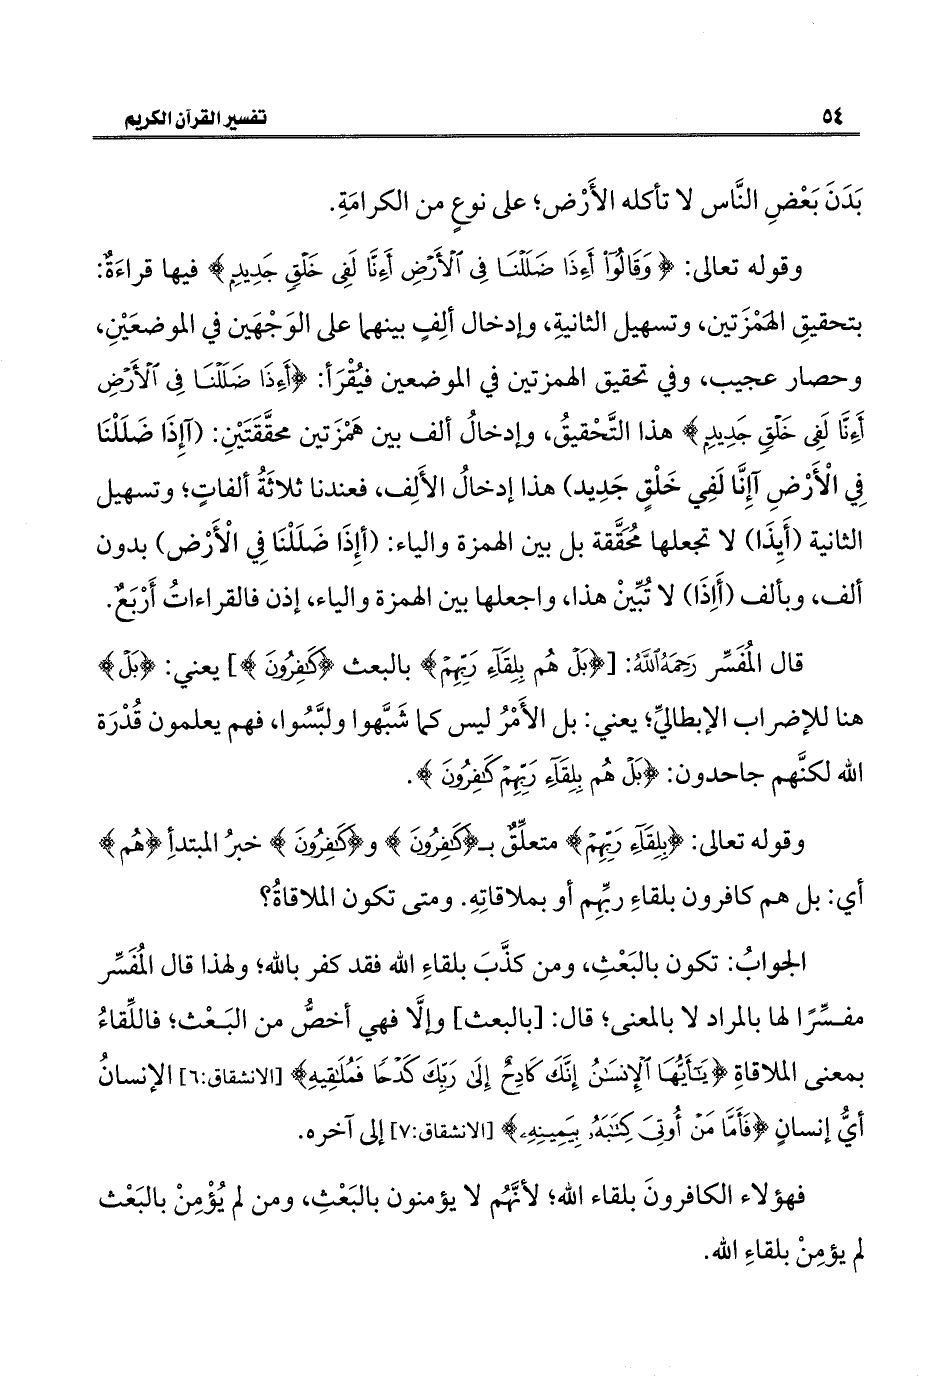 ٥٤ تفسير القرآن الكريم
بَدَنَ بَعْضِ النَّاس لا تأكله الأَرْض؛ على نوعٍ من الكرامَةِ.
وقوله تعالى: ﴿وَقَالُوٓا۟ أَءِذَا ضَلَلْنَا فِى ٱلْأَرْضِ أَءِنَّا لَفِى خَلْقٍ جَدِيدٍ﴾ فيها قراءَةٌ:
بتحقيقِ الهَمْزَتين، وتسهيل الثانيةِ، وإدخال ألِفٍ بينهما على الوَجْهَين في الموضعَيْنِ،
وحصار عجيب، وفي تحقيق الهمزتين في الموضعين فيُقْرَأ: ﴿أَءِذَا ضَلَلْنَا فِى ٱلْأَرْضِ
أَءِنَّا لَفِى خَلْقٍ جَدِيدٍ﴾ هذا التَّحْقيقُ، وإدخالُ ألف بين هَمْزَتين محقَّقَتَيْنِ: (آإِذَا ضَلَلْنَا
فِي الْأَرْضِ آإِنَّا لَفِي خَلْقٍ جَدِيد) هذا إدخالُ الأَلِف، فعندنا ثلاثَةُ ألفاتٍ؛ وتسهيل
الثانية (أَيِذَا) لا تجعلها مُحَقَّقة بل بين الهمزة والياء: (أَإِذَا ضَلَلْنَا فِي الْأَرْض) بدون
ألف، وبألف (أَاِذَا) لا تُبِّينْ هذا، واجعلها بين الهمزة والياء، إذن فالقراءاتُ أَرْبَعٌ.
قال المُفَسِّر رَحِمَهُ ٱللَّهُ: [﴿بَلْ هُم بِلِقَآءِ رَبِّهِمْ﴾ بالبعث ﴿كَٰفِرُونَ﴾] يعني: ﴿بَلْ﴾
هنا للإضراب الإبطاليِّ؛ يعني: بل الأَمْرُ ليس كما شَبَّهوا ولبَّسُوا، فهم يعلمون قُدْرَة
الله لكنَّهم جاحدون: ﴿بَلْ هُم بِلِقَآءِ رَبِّهِمْ كَٰفِرُونَ﴾.
وقوله تعالى: ﴿بِلِقَآءِ رَبِّهِمْ﴾ متعلِّقٌ بـ﴿كَٰفِرُونَ﴾ و﴿كَٰفِرُونَ﴾ خبرُ المبتدأِ ﴿هُم﴾
أي: بل هم كافرون بلقاءِ ربِّهِم أو بملاقاتِهِ. ومتى تكون الملاقاةُ؟
الجوابُ: تكون بالبَعْثِ، ومن كذَّبَ بلقاءِ الله فقد كفر بالله؛ ولهذا قال المُفَسِّر
مفسِّرًا لها بالمراد لا بالمعنى؛ قال: [بالبعث] وإلَّا فهي أخصُّ من البَعْث؛ فاللِّقاءُ
بمعنى الملاقاةِ ﴿يَٰٓأَيُّهَا ٱلْإِنسَٰنُ إِنَّكَ كَادِحٌ إِلَىٰ رَبِّكَ كَدْحًا فَمُلَٰقِيهِ﴾ [الانشقاق:٦] الإنسانُ
أيُّ إنسانٍ ﴿فَأَمَّا مَنْ أُوتِىَ كِتَٰبَهُۥ بِيَمِينِهِۦ﴾ [الانشقاق:٧] إلى آخره.
فهؤلاء الكافرونَ بلقاء الله؛ لأنَّهُم لا يؤمنون بالبَعْثِ، ومن لم يُؤْمِنْ بالبَعْث
لم يؤمِنْ بلقاءِ الله.